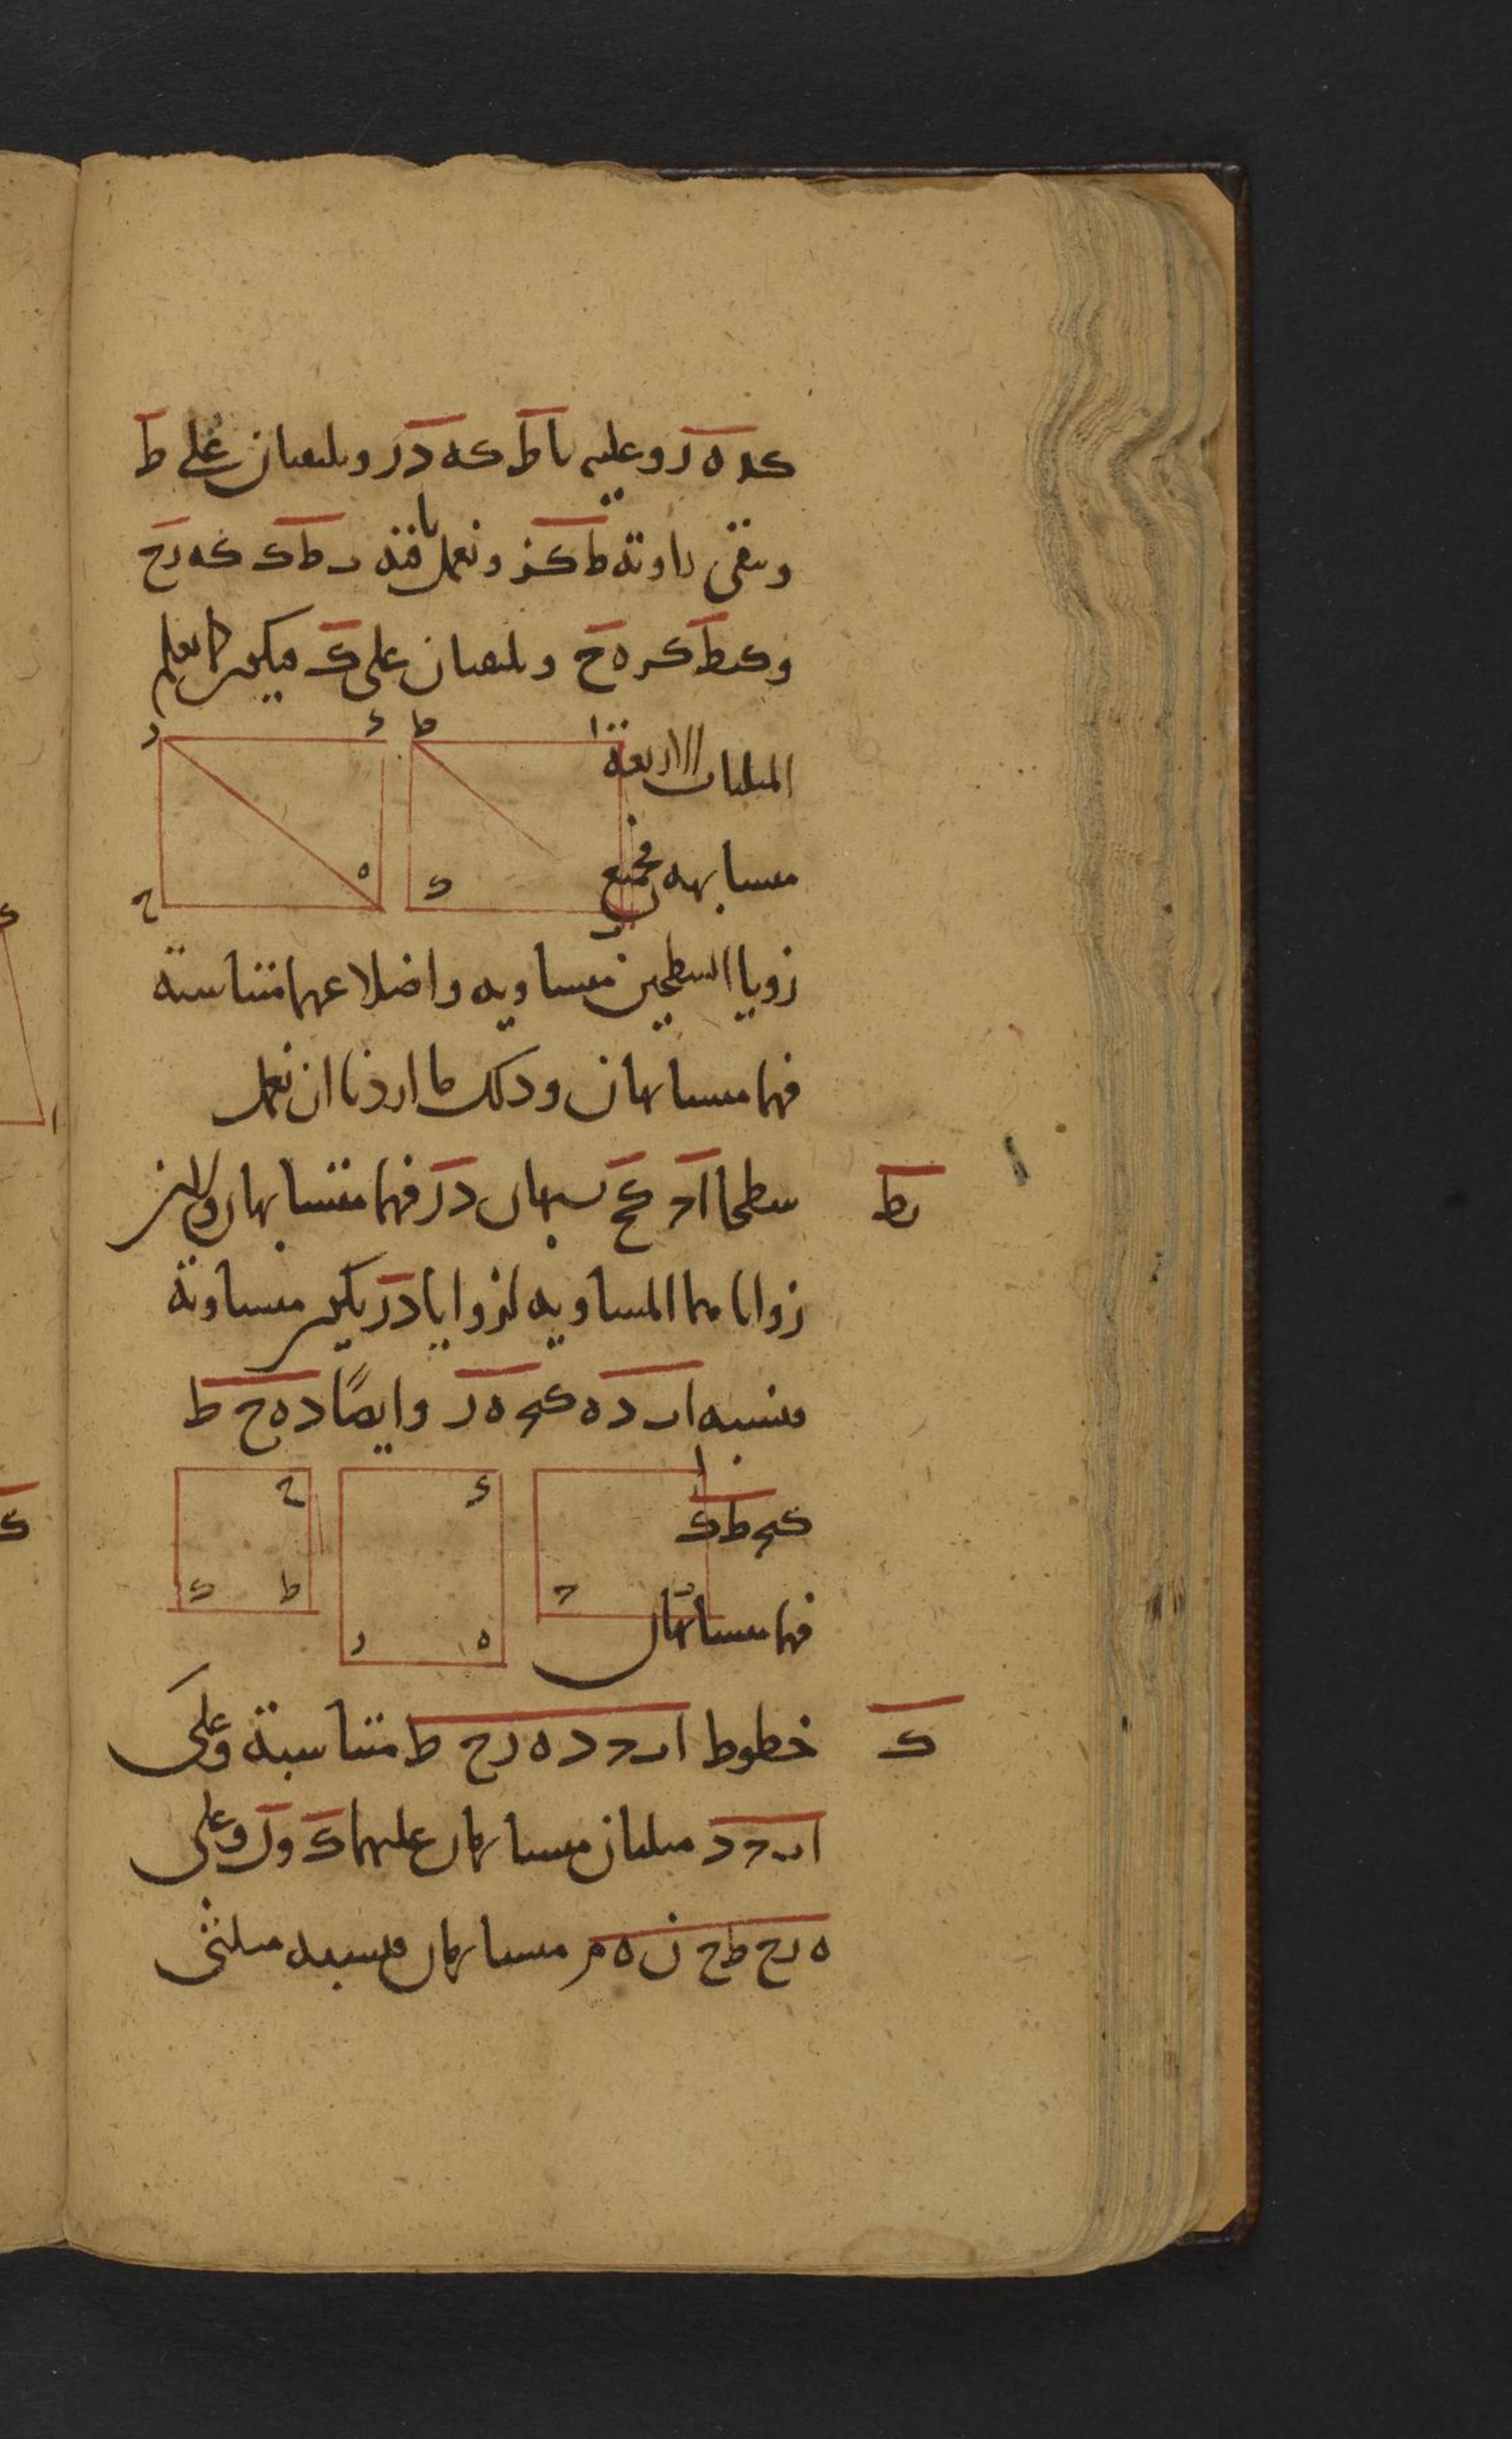 كد ه ر وعليه باط كه د ر ويلتقيان على ط
وتبقى زاوية ط كز ونعمل يافته ر ط ك كه رح
و كط كر ه ح ويلتقيان على ك فيكون كما نعلم
ز ح ه د ط ك ا
المثلثات الاربعة
متشابهه فجميع
زويا السطحين متساويه واضلاعهما متناسبة
فهما متشابهان وذلك ما اردنا ان نعمل
يط سطحا اح كح يشبهان در فهما متشابهان ولان
زوايا هما المساويه لزوايا در يكون متساوية
فنسبه اب د ه كبح ه ر وايضًا د ه ح ط
كبح ط ك
ا ح د ه ر ح ط ك
فهما متشابهان
ك خطوط اب ح د ه ر ح ط متناسبة وعلى
اب ح د مثلثان متشابهان عليهما ك و ل وعلى
ه ر ح ط ح ن ه م متشابهان فنسبه مثلثى